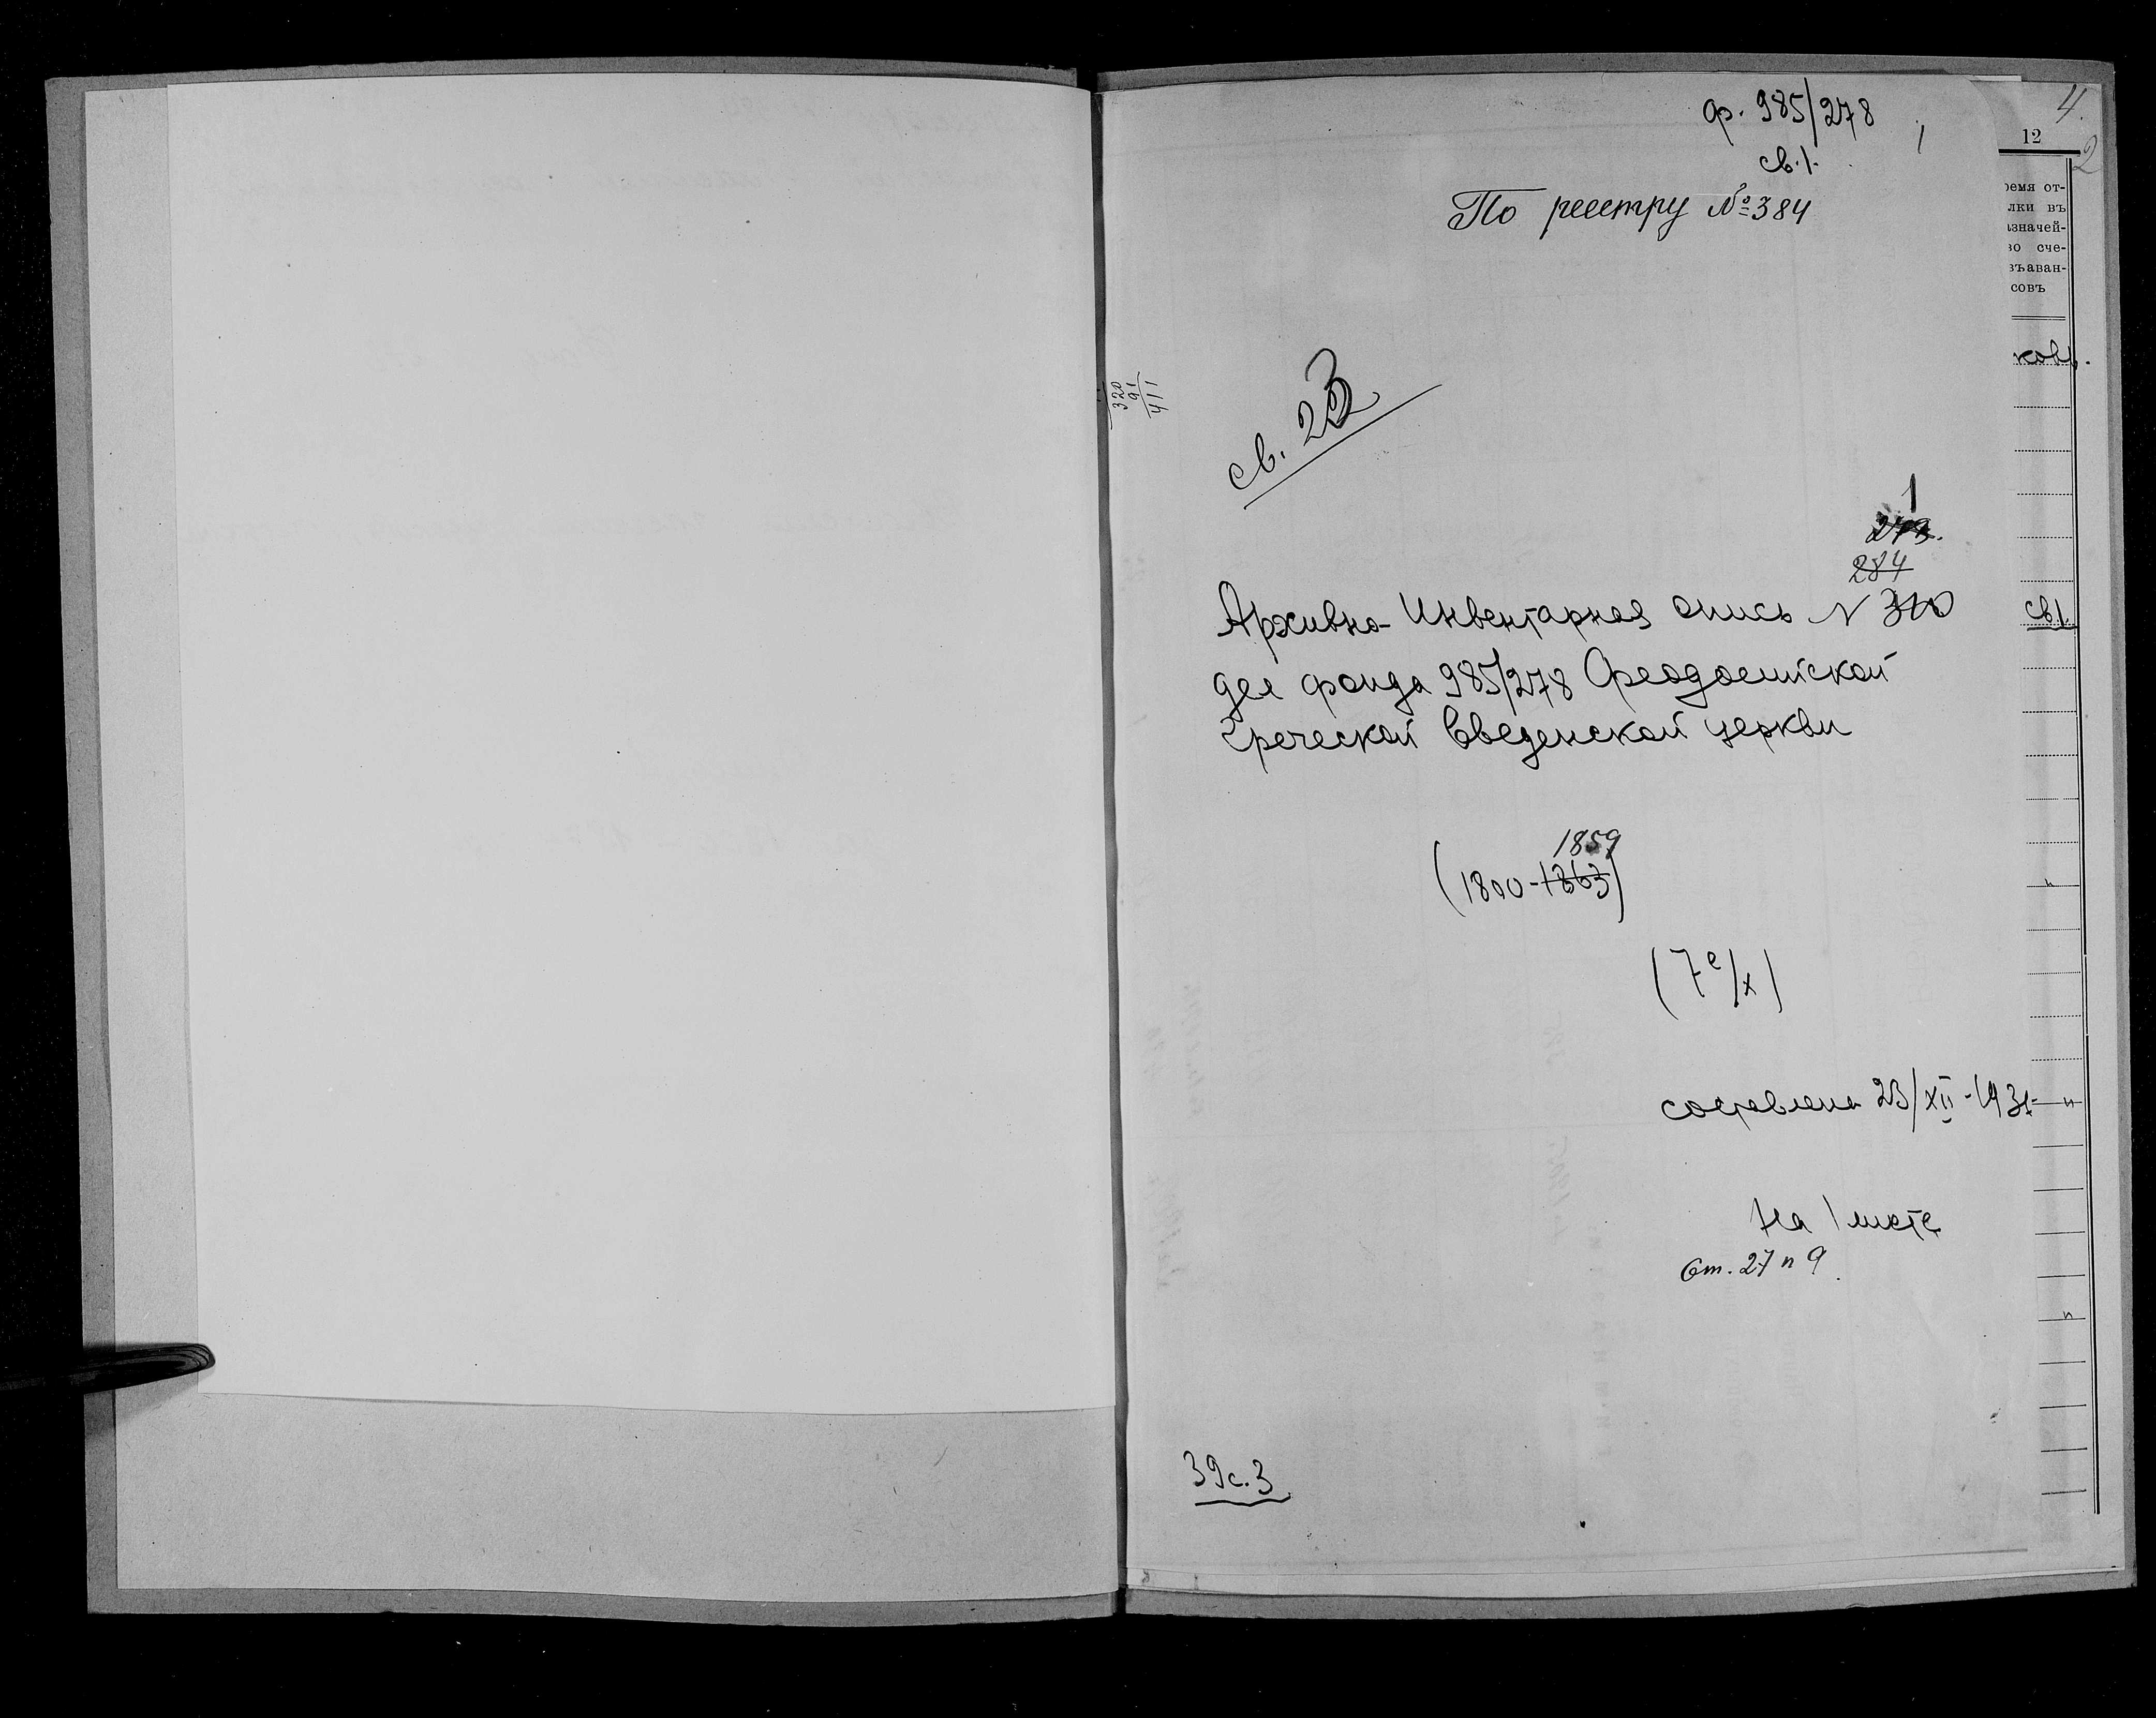 ф. 985/278
св. 1.
По реестру № 384
4.
12
2
1
ремя от-
лки въ
азначей-
во сче-
въ аван-
совъ
320
91
411
св. 23
1
273.
284
Архивно-Инвентарная опись N 310
дел фонда 985/278 Феодосийской
Греческой Введенской церкви
св. 1.
1859
(1800-1863)
(7 е/х)
составлена 23/XII-1931
На 1 листе
Ст. 27 п 9
39с.3